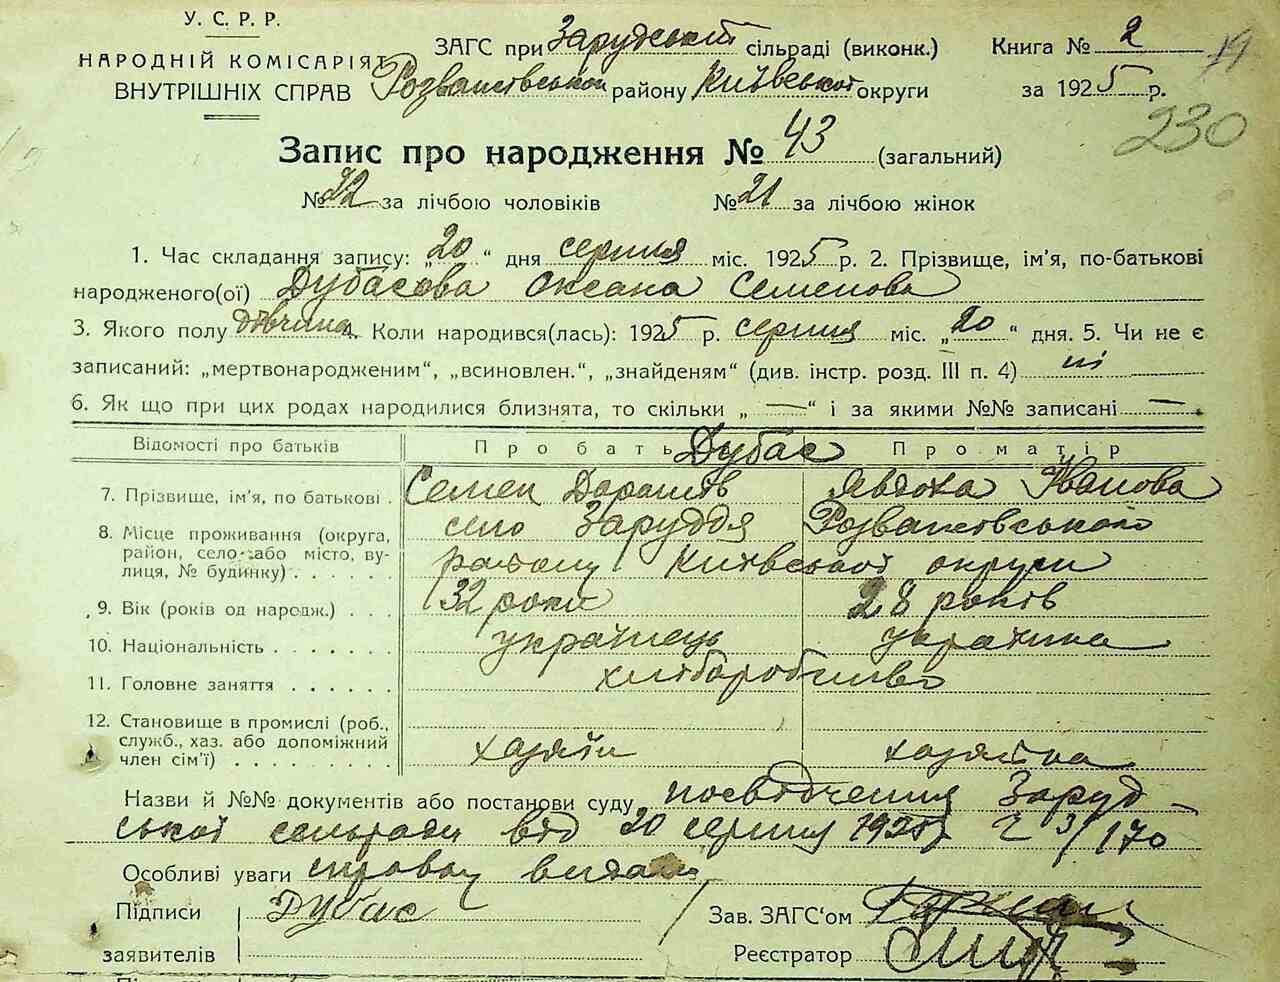 У. С. Р. Р.
НАРОДНІЙ КОМІСАРІЯТ
ВНУТРІШНІХ СПРАВ
ЗАГС при Зарудській сільраді (виконк.)
Розважівського району Київської округи
Книга № 2
за 1925 р.
230
Запис про народження № 43 (загальний)
№ 22 за лічбою чоловіків № 21 за лічбою жінок
1. Час складання запису: „20“ дня серпня міс. 1925 р. 2. Прізвище, ім'я, по-батькові
народженого(ої) Дубасова Оксана Семенова
3. Якого полу дівчина 4. Коли народився(лась): 1925 р. серпня міс. „20“ дня. 5. Чи не є
записаний: „мертвонародженим“, „всиновлен.“, „знайденям“ (див. інстр. розд. III п. 4) ні
6. Як що при цих родах народилися близнята, то скільки „ — “ і за якими №№ записані —
Відомості про батьків Про бать Дубас Про матір
7. Прізвище, ім'я, по батькові . Семен Явдоха Іванова
8. Місце проживання (округа, село Заруддя Розважівського
район, село або місто, ву-
лиця, № будинку) . . . . . . району Київської округи
9. Вік (років од народж.) . . . 32 роки 28 років
10. Національність . . . . . . . українець українка
11. Головне заняття . . . . . . хліборобство
12. Становище в промислі (роб.,
служб., хаз. або допоміжний
член сім'ї) . . . . . . . . . хазяїн хазяйка
Назви й №№ документів або постанови суду посвідчення Заруд-
ської сельради від 20 серпня 1925р Ч 3/170
Особливі уваги
Підписи Дубас Зав. ЗАГС'ом
заявителів Реєстратор